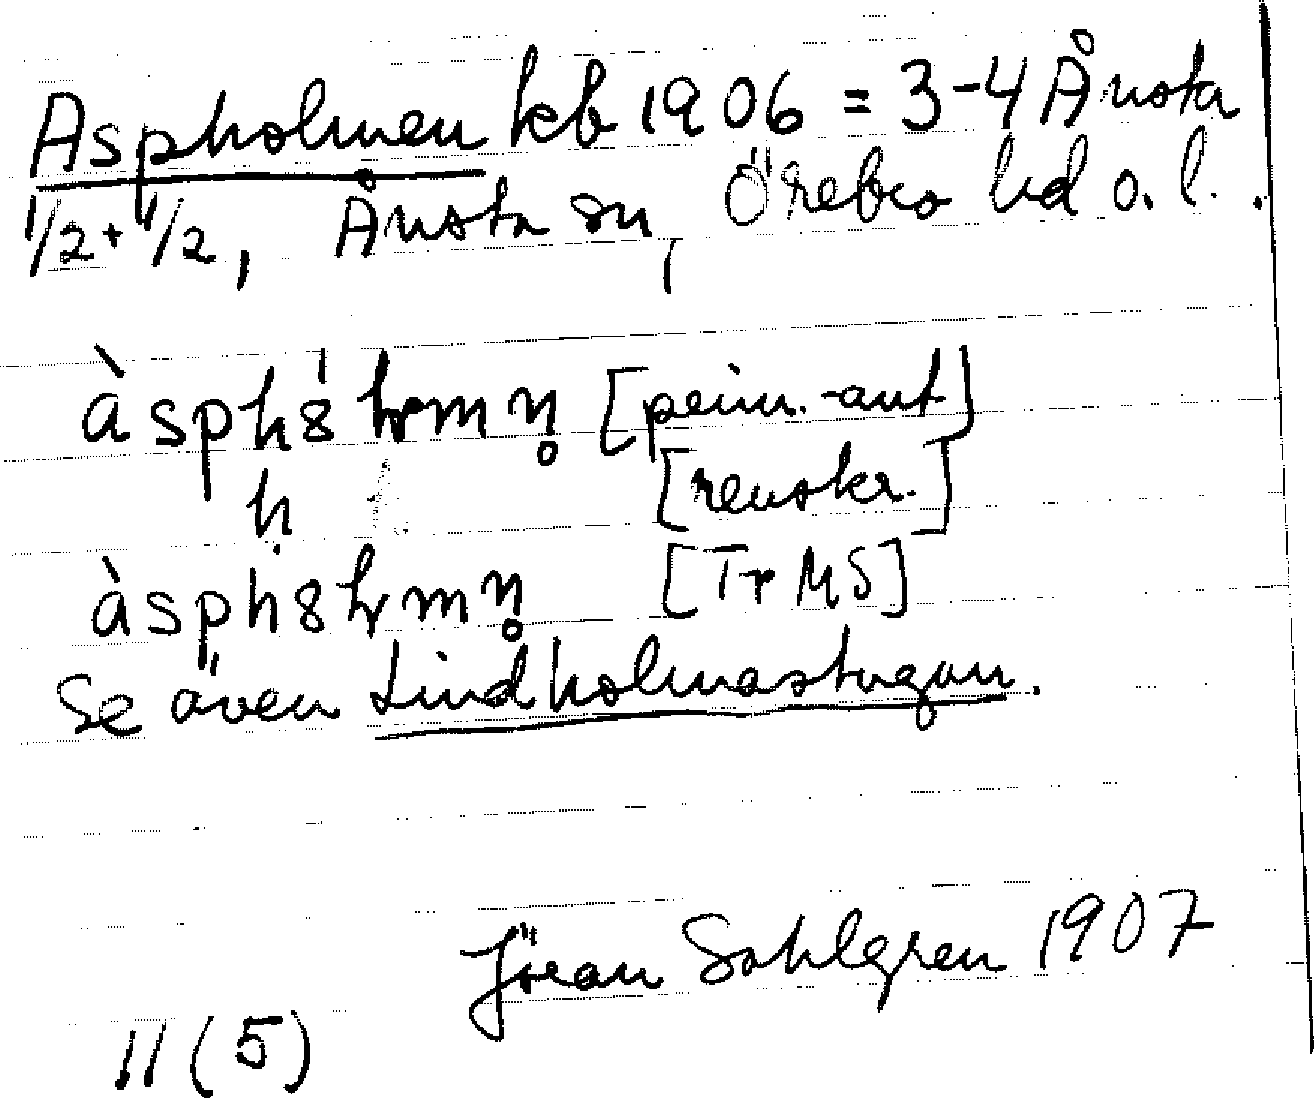 Aspholmen kb 1906 = 3-4 Ånsta
1/2 + 1/2, Ånsta sn, Örebro hd o. l.
àsph8́hrmn̥ [prim.-ant]
h [renskr.]
àsph8hrmn̥ [Tr MS]
Se även Lindholmastugan.
Jöran Sahlgren 1907
11 (5)